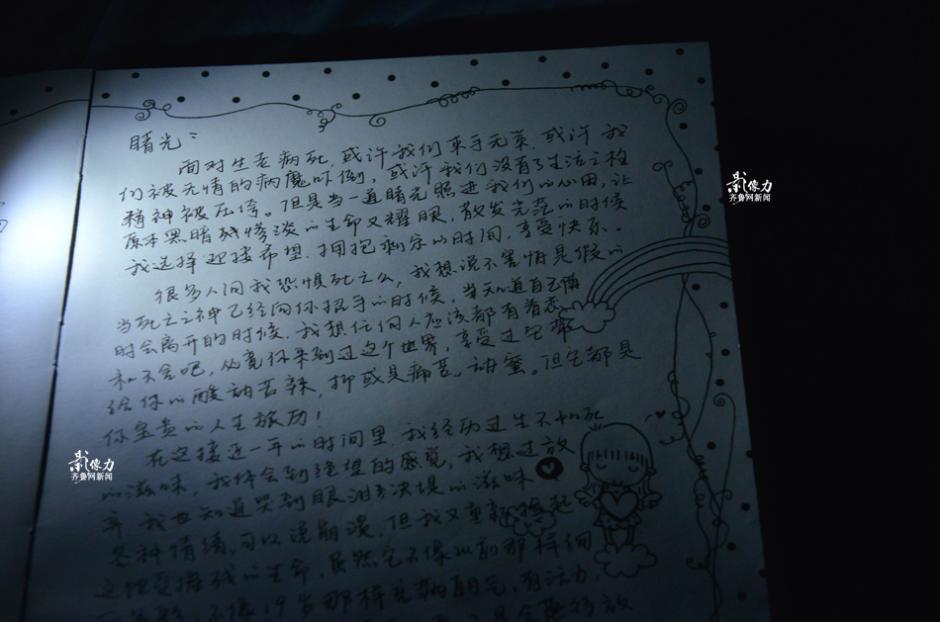 晴光：
面对生老病死，或许我们束手无策，或许我
们被无情的病魔吓倒，或许我们没有了生活之柱
精神被压垮。但是当一道晴光照进我们的心田，让
原本黑暗残惨淡的生命又耀眼，散发光茫的时候
我选择迎接希望，拥抱剩余的时间，享受快乐。
很多人问我恐惧死亡么，我想说不害怕是假的
当死亡之神已经向你招手的时候，当知道自己随
时会离开的时候，我想任何人应该都有着恋
和不舍吧，必竟你来到过这个世界，享受过它带
给你的酸甜苦辣，抑或是痛苦、甜蜜。但它都是
你宝贵的人生旅历！
在这接近一年的时间里，我经历过生不如死
的滋味，我体会到绝望的感觉，我想过放
弃 我也知道哭到眼泪决堤的滋味
各种情绪，可以说崩溃，但我又重新捡起
这饱受摧残的生命，虽然它不像以前那样
不像19岁那样充满朝气，有活力，
影像力
齐鲁网新闻
影像力
齐鲁网新闻